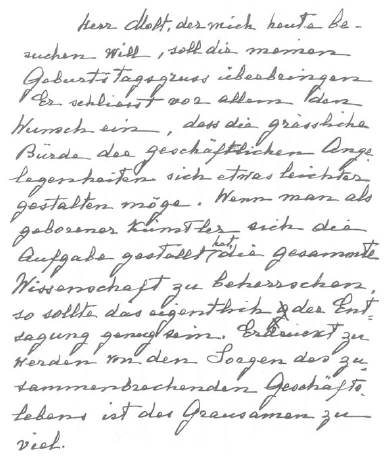 Herr Molt, der mich heute be-
suchen will, soll dir meinen
Geburtstagsgruss überbringen
Er schliesst vor allem den
Wunsch ein, dass die grässliche
Bürde der geschäftlichen Ange
legenheiten sich etwas leichter
gestalten möge. Wenn man als
geborener Künstler sich die
Aufgabe gestellt hat, die gesammte
Wissenschaft zu beherrschen,
so sollte das eigentlich der Ent-
sagung genug sein. Erdrückt zu
werden von den Sorgen des zu-
sammenbrechenden Geschäfts-
lebens ist des Grausamen zu
viel.